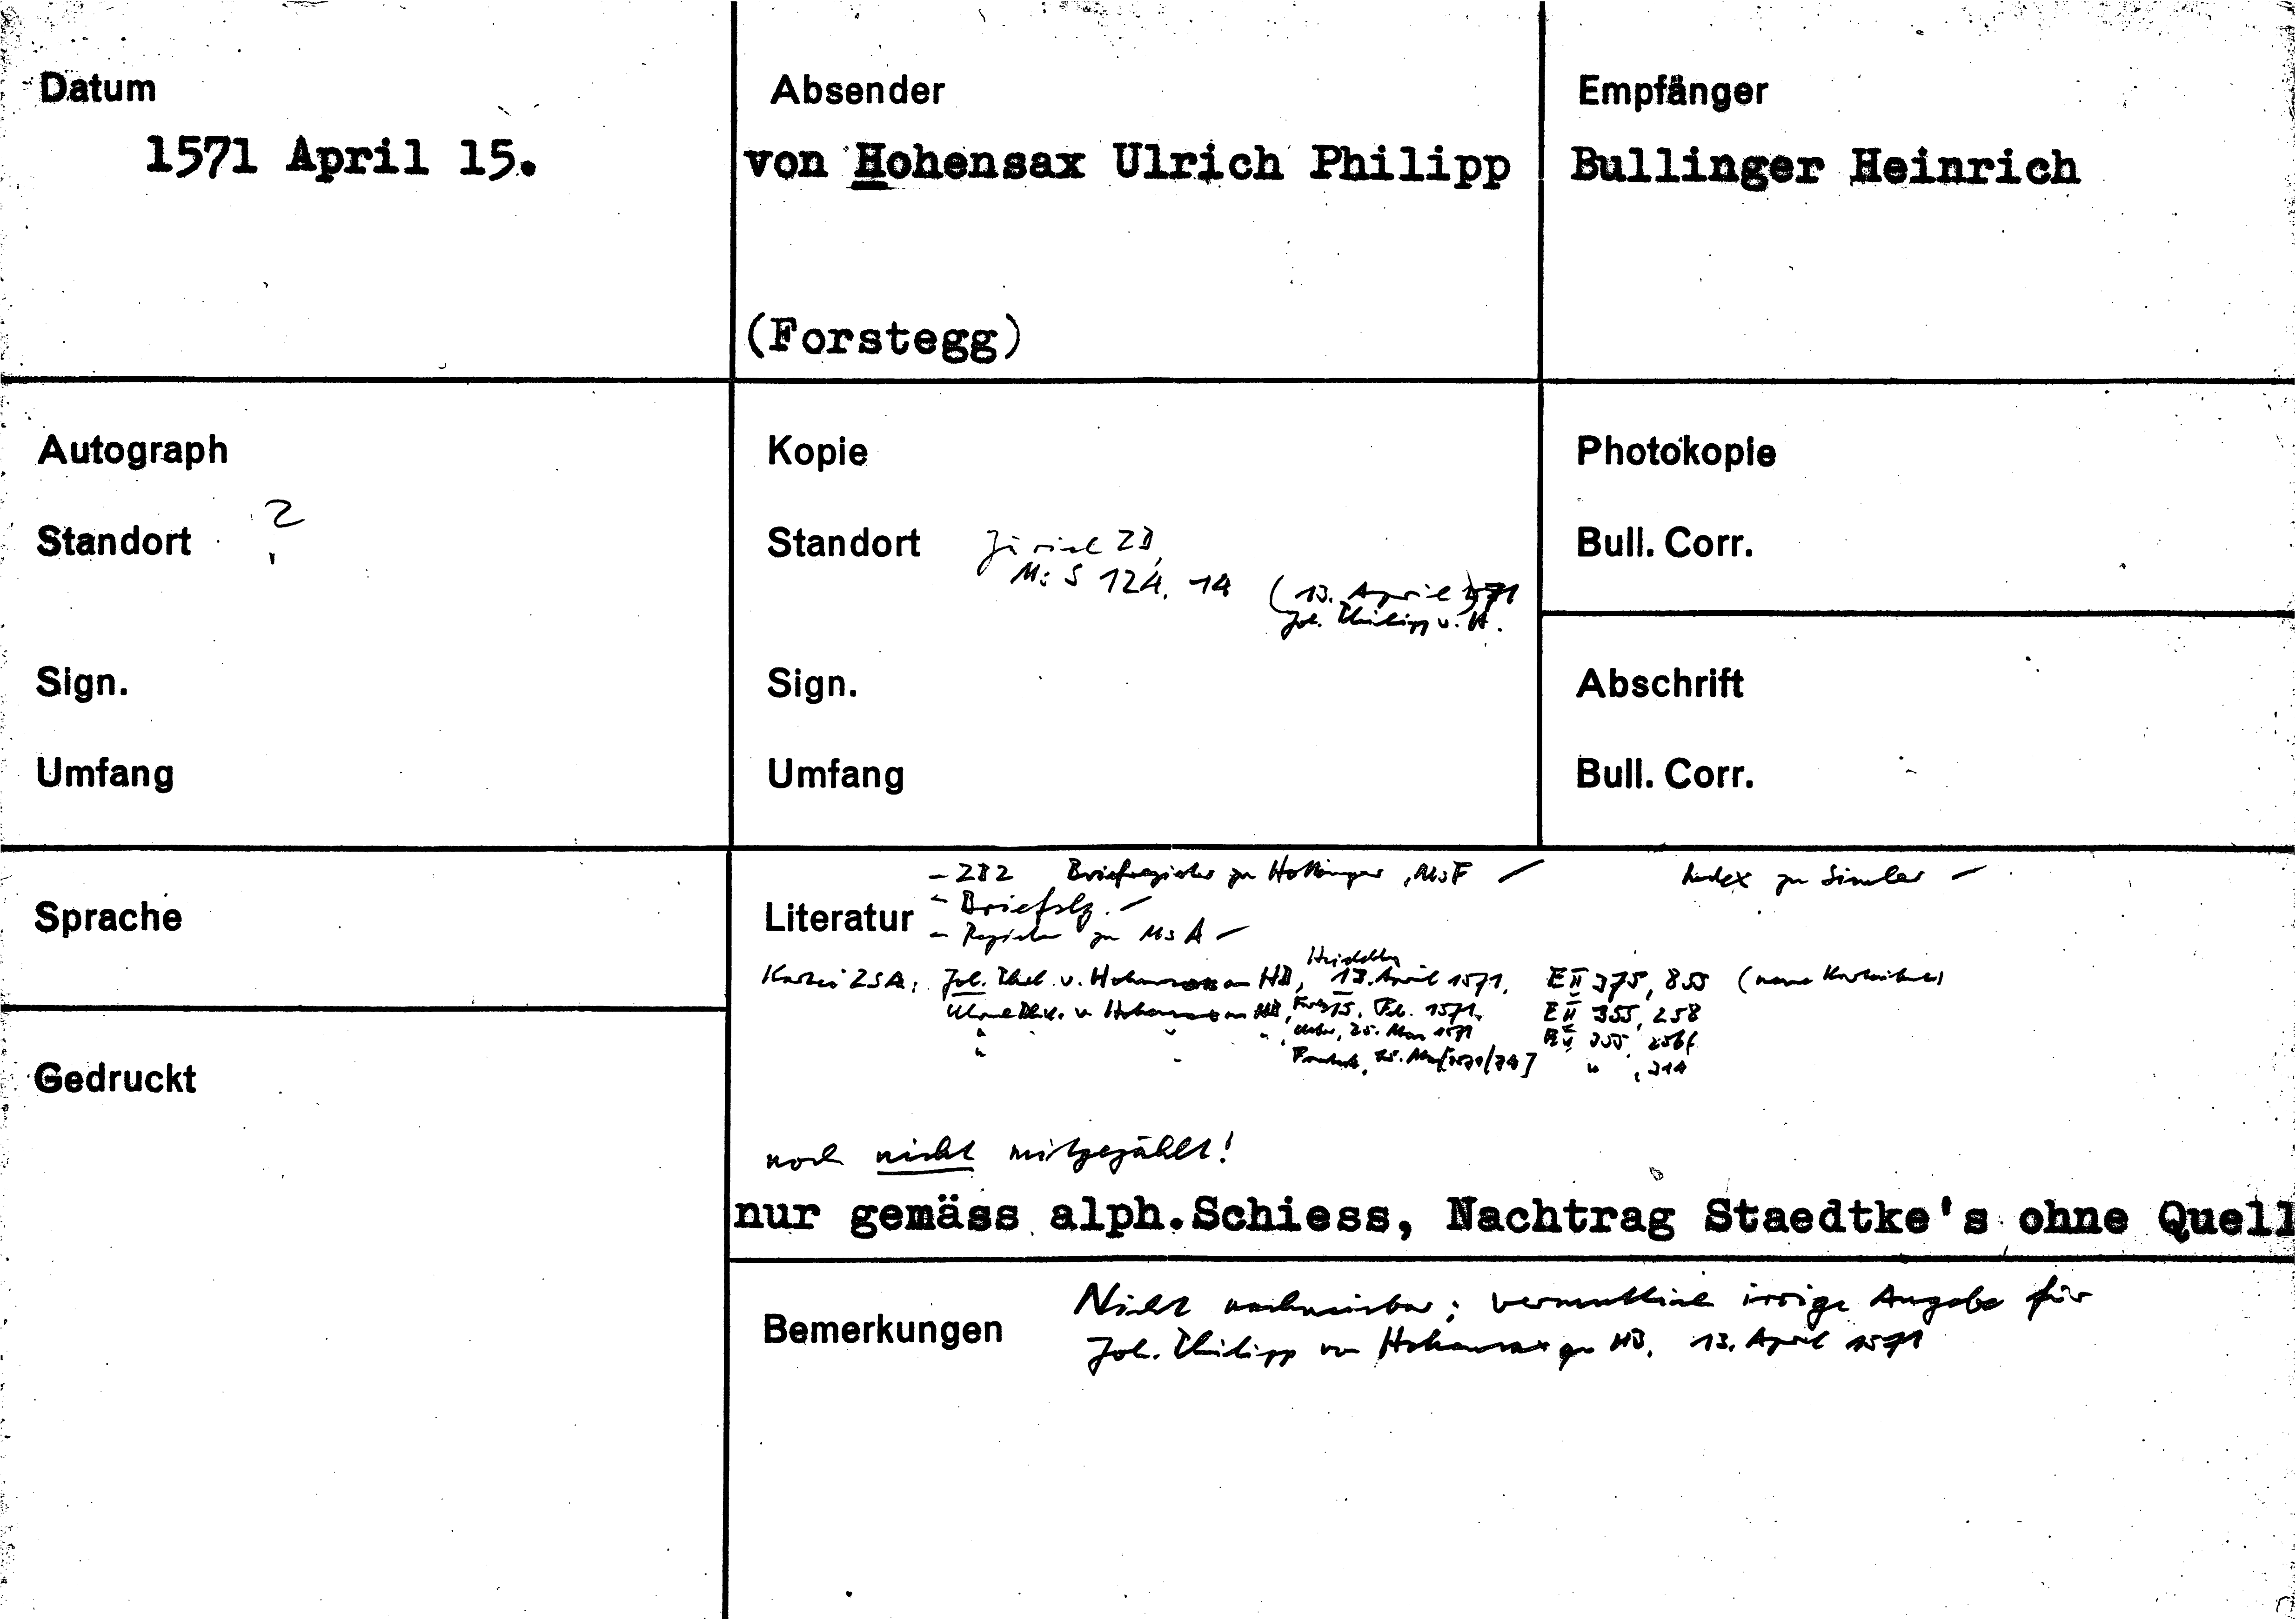 Datum
1571 April 15.
Absender
von Hohensax Ulrich Philipp
(Forstegg)
Empfänger
Bullinger Heinrich
Autograph
Standort ?
Sign.
Umfang
Kopie
Standort Zürich ZB,
Ms S 124, 14 (13. April 1571
Joh. Philipp v. H.
Sign.
Umfang
Photokopie
Bull. Corr.
Abschrift
Bull. Corr.
Sprache
Gedruckt
- ZBZ Briefregister zu Hottinger, Ms F - Index zu Simler -
Literatur - Briefslg. -
- Register zu Ms A -
Heidelbg
Kartei ZSA: Joh. Phil. v. Hohensax an HB, 13. April 1571, E II 375, 855 (neue Karteikarte)
v. Hohensax an HB, 15. Feb. 1571, E II 355, 258
" " ", 25. 1571 E II 355, 256f
" " 25. [1571/74] " , 314
noch nicht mitgezählt!
nur gemäss alph.Schiess, Nachtrag Staedtke's ohne Quell
Bemerkungen
Nicht nachweisbar; vermutlich irrige Angabe für
Joh. Philipp von Hohensax an HB, 13. April 1571